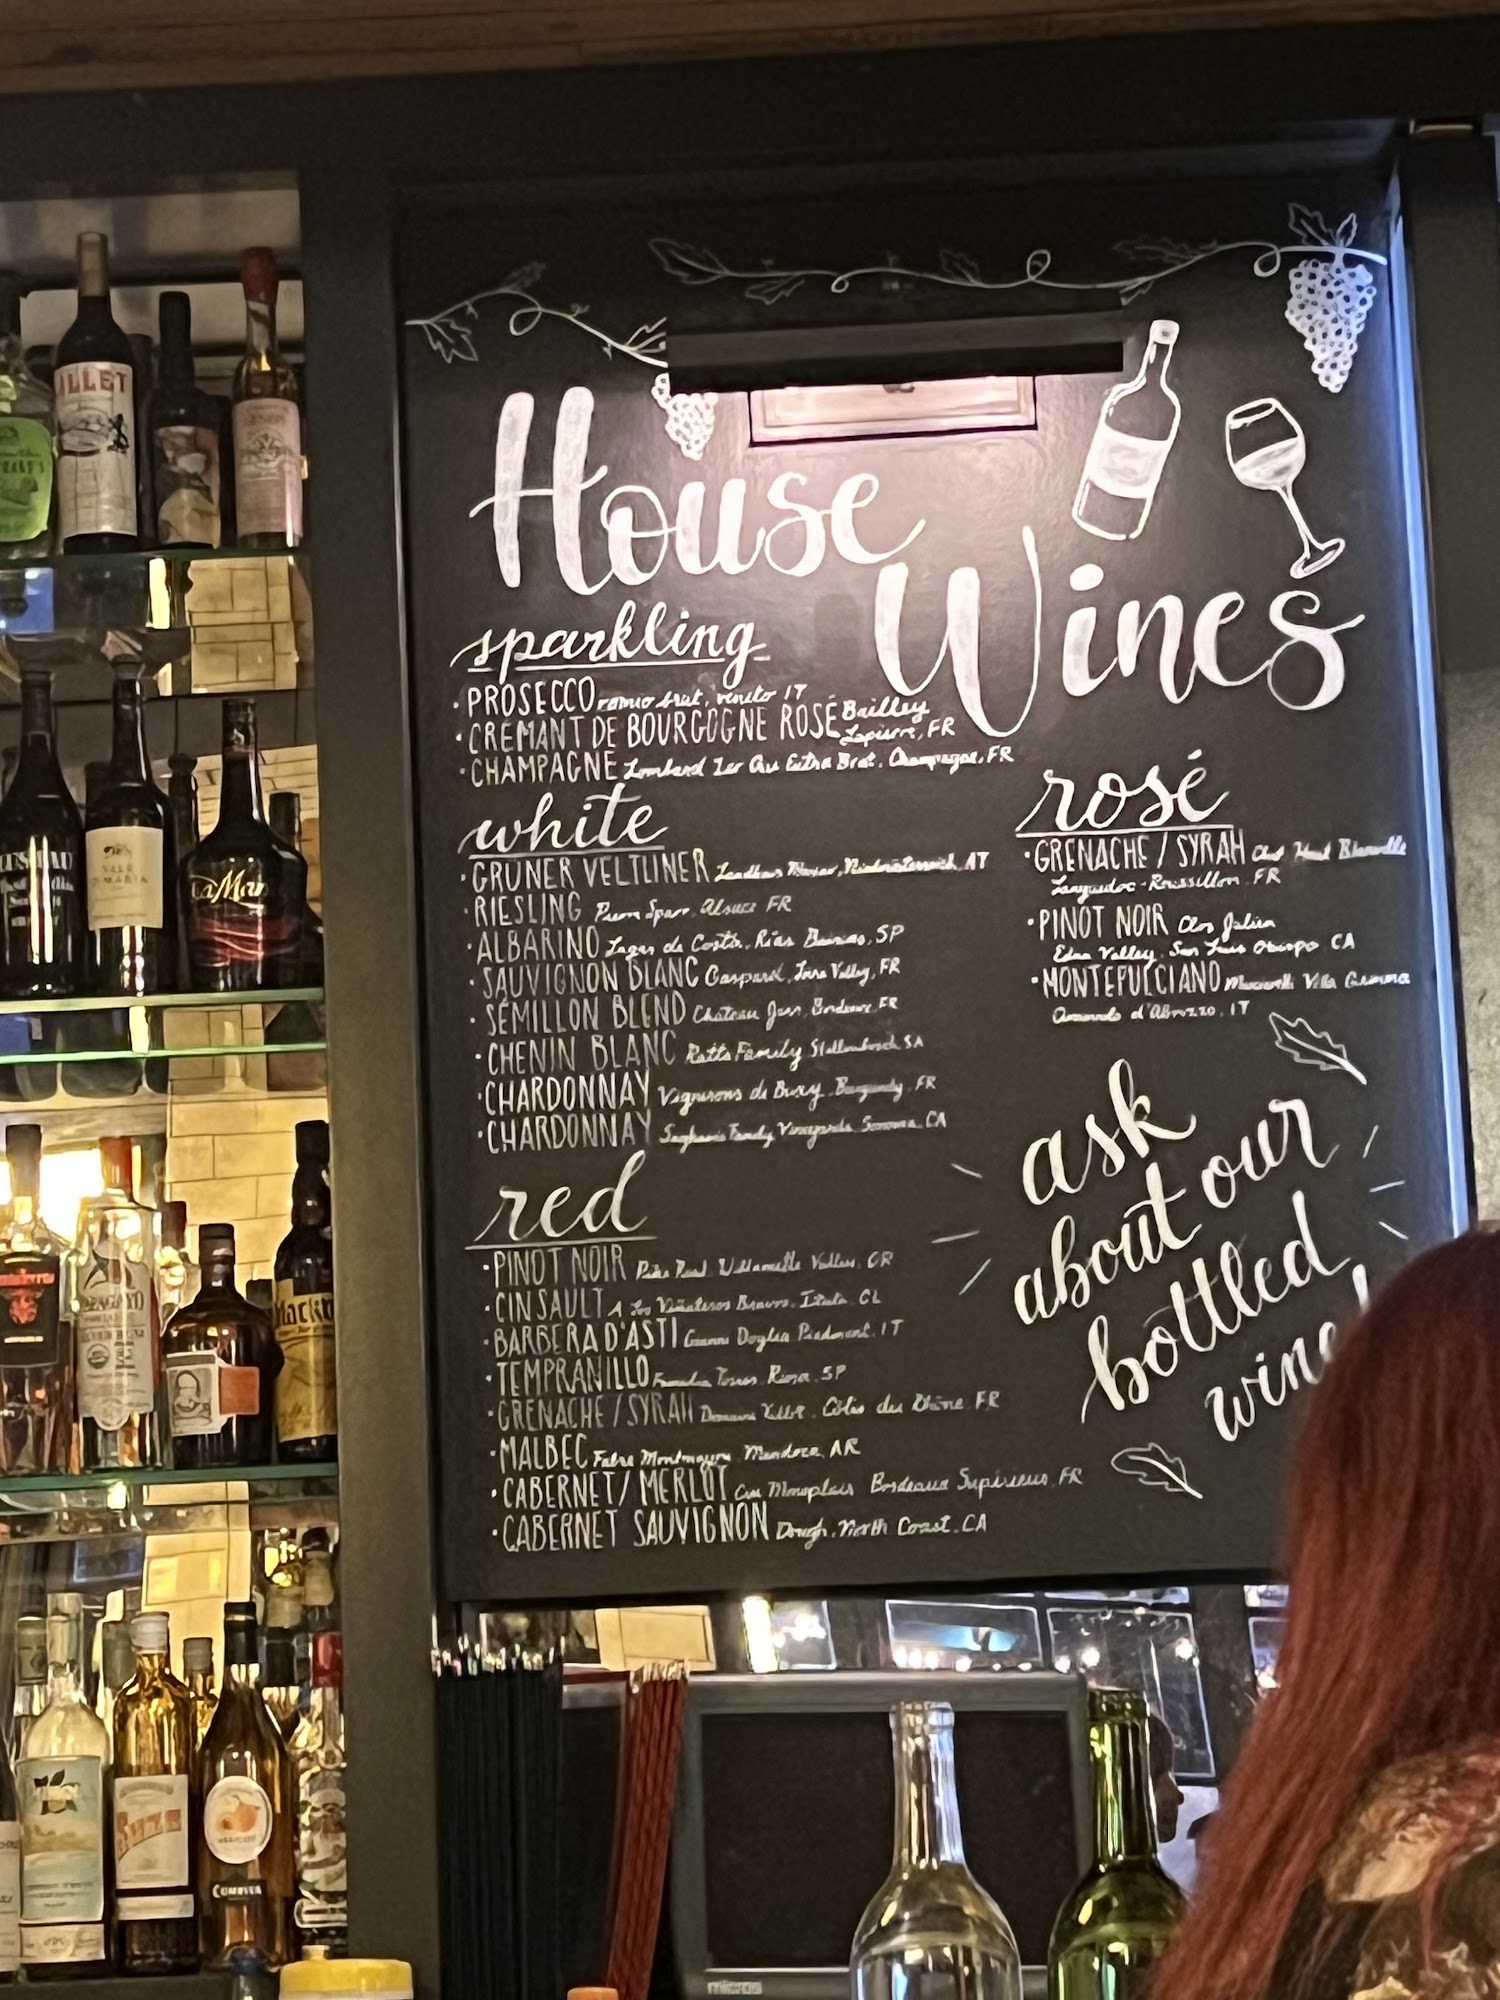 House
Wines
sparkling
· PROSECCO romio brut, veneto IT
· CRÉMANT DE BOURGOGNE ROSÉ Bailley
Lapierre, FR
· CHAMPAGNE Lombard 1er Cru Extra Brut, Champagne, FR
white
· GRUNER VELTLINER Landhaus Mayer, Niederösterreich, AT
· RIESLING Pierre Sparr, Alsace FR
· ALBARINO Lagar de Costa, Rias Baixas, SP
· SAUVIGNON BLANC Gaspard, Loire Valley, FR
· SÉMILLON BLEND Château Bordeaux, FR
· CHENIN BLANC Family Stellenbosch, SA
· CHARDONNAY Vignerons de Buxy, Burgundy, FR
· CHARDONNAY Family Vineyards, Sonoma, CA
red
· PINOT NOIR Road, Willamette Valley, OR
· CINSAULT A Los Viñateros Bravos, Itata, CL
· BARBERA D'ASTI Gianni Doglia Piedmont, IT
· TEMPRANILLO Torres, Rioja, SP
· GRENACHE / SYRAH Domaine Côtes du Rhône, FR
· MALBEC Fabre Montmayou, Mendoza, AR
· CABERNET / MERLOT Cru Monplaisir Bordeaux Supérieur, FR
· CABERNET SAUVIGNON Dough, North Coast, CA
rosé
· GRENACHE / SYRAH
Languedoc-Roussillon, FR
· PINOT NOIR Clos Julien
Edna Valley, San Luis Obispo CA
· MONTEPULCIANO Villa Gemma
d'Abruzzo, IT
ask
about our
bottled
LILLET
La Mar
CUMBIA